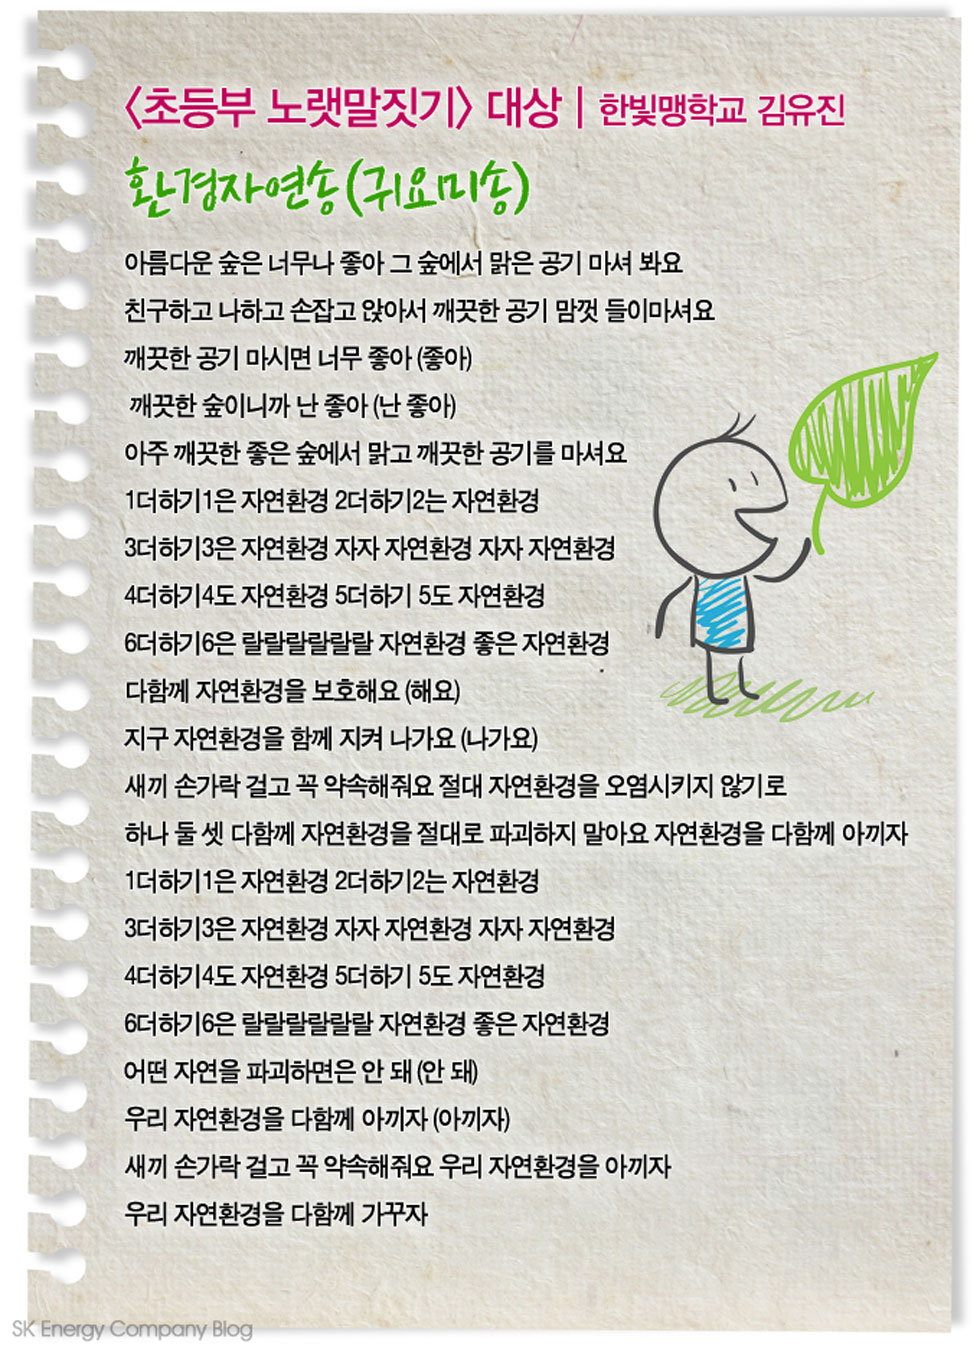 <초등부 노랫말짓기> 대상 | 한빛맹학교 김유진
환경자연송(귀요미송)
아름다운 숲은 너무나 좋아 그 숲에서 맑은 공기 마셔 봐요
친구하고 나하고 손잡고 앉아서 깨끗한 공기 맘껏 들이마셔요
깨끗한 공기 마시면 너무 좋아 (좋아)
깨끗한 숲이니까 난 좋아 (난 좋아)
아주 깨끗한 좋은 숲에서 맑고 깨끗한 공기를 마셔요
1더하기1은 자연환경 2더하기2는 자연환경
3더하기3은 자연환경 자자 자연환경 자자 자연환경
4더하기4도 자연환경 5더하기 5도 자연환경
6더하기6은 랄랄랄랄랄랄 자연환경 좋은 자연환경
다함께 자연환경을 보호해요 (해요)
지구 자연환경을 함께 지켜 나가요 (나가요)
새끼 손가락 걸고 꼭 약속해줘요 절대 자연환경을 오염시키지 않기로
하나 둘 셋 다함께 자연환경을 절대로 파괴하지 말아요 자연환경을 다함께 아끼자
1더하기1은 자연환경 2더하기2는 자연환경
3더하기3은 자연환경 자자 자연환경 자자 자연환경
4더하기4도 자연환경 5더하기 5도 자연환경
6더하기6은 랄랄랄랄랄랄 자연환경 좋은 자연환경
어떤 자연을 파괴하면은 안 돼 (안 돼)
우리 자연환경을 다함께 아끼자 (아끼자)
새끼 손가락 걸고 꼭 약속해줘요 우리 자연환경을 아끼자
우리 자연환경을 다함께 가꾸자
SK Energy Company Blog